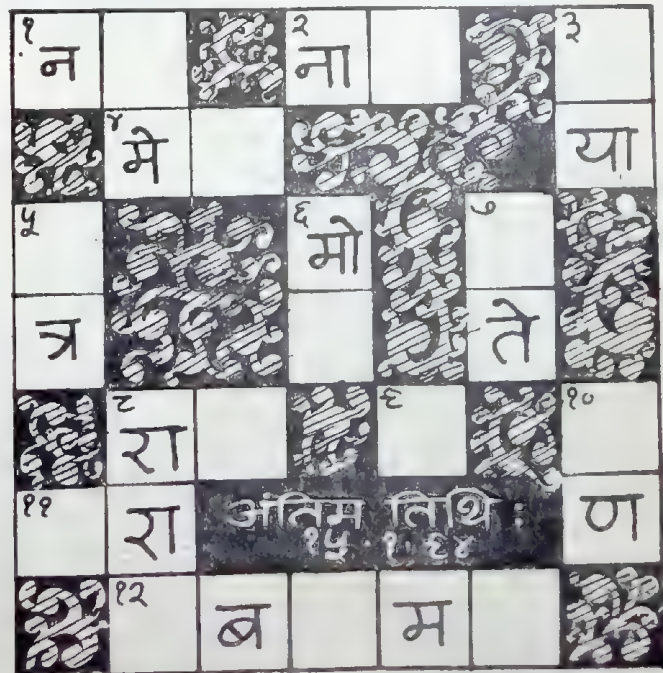 १ न २ ना ३
४ मे या
५ ६ मो ७
त्र ते
८ रा ९ १०
११ रा अंतिम तिथि : ण
१५.१.६४
१२ ब म